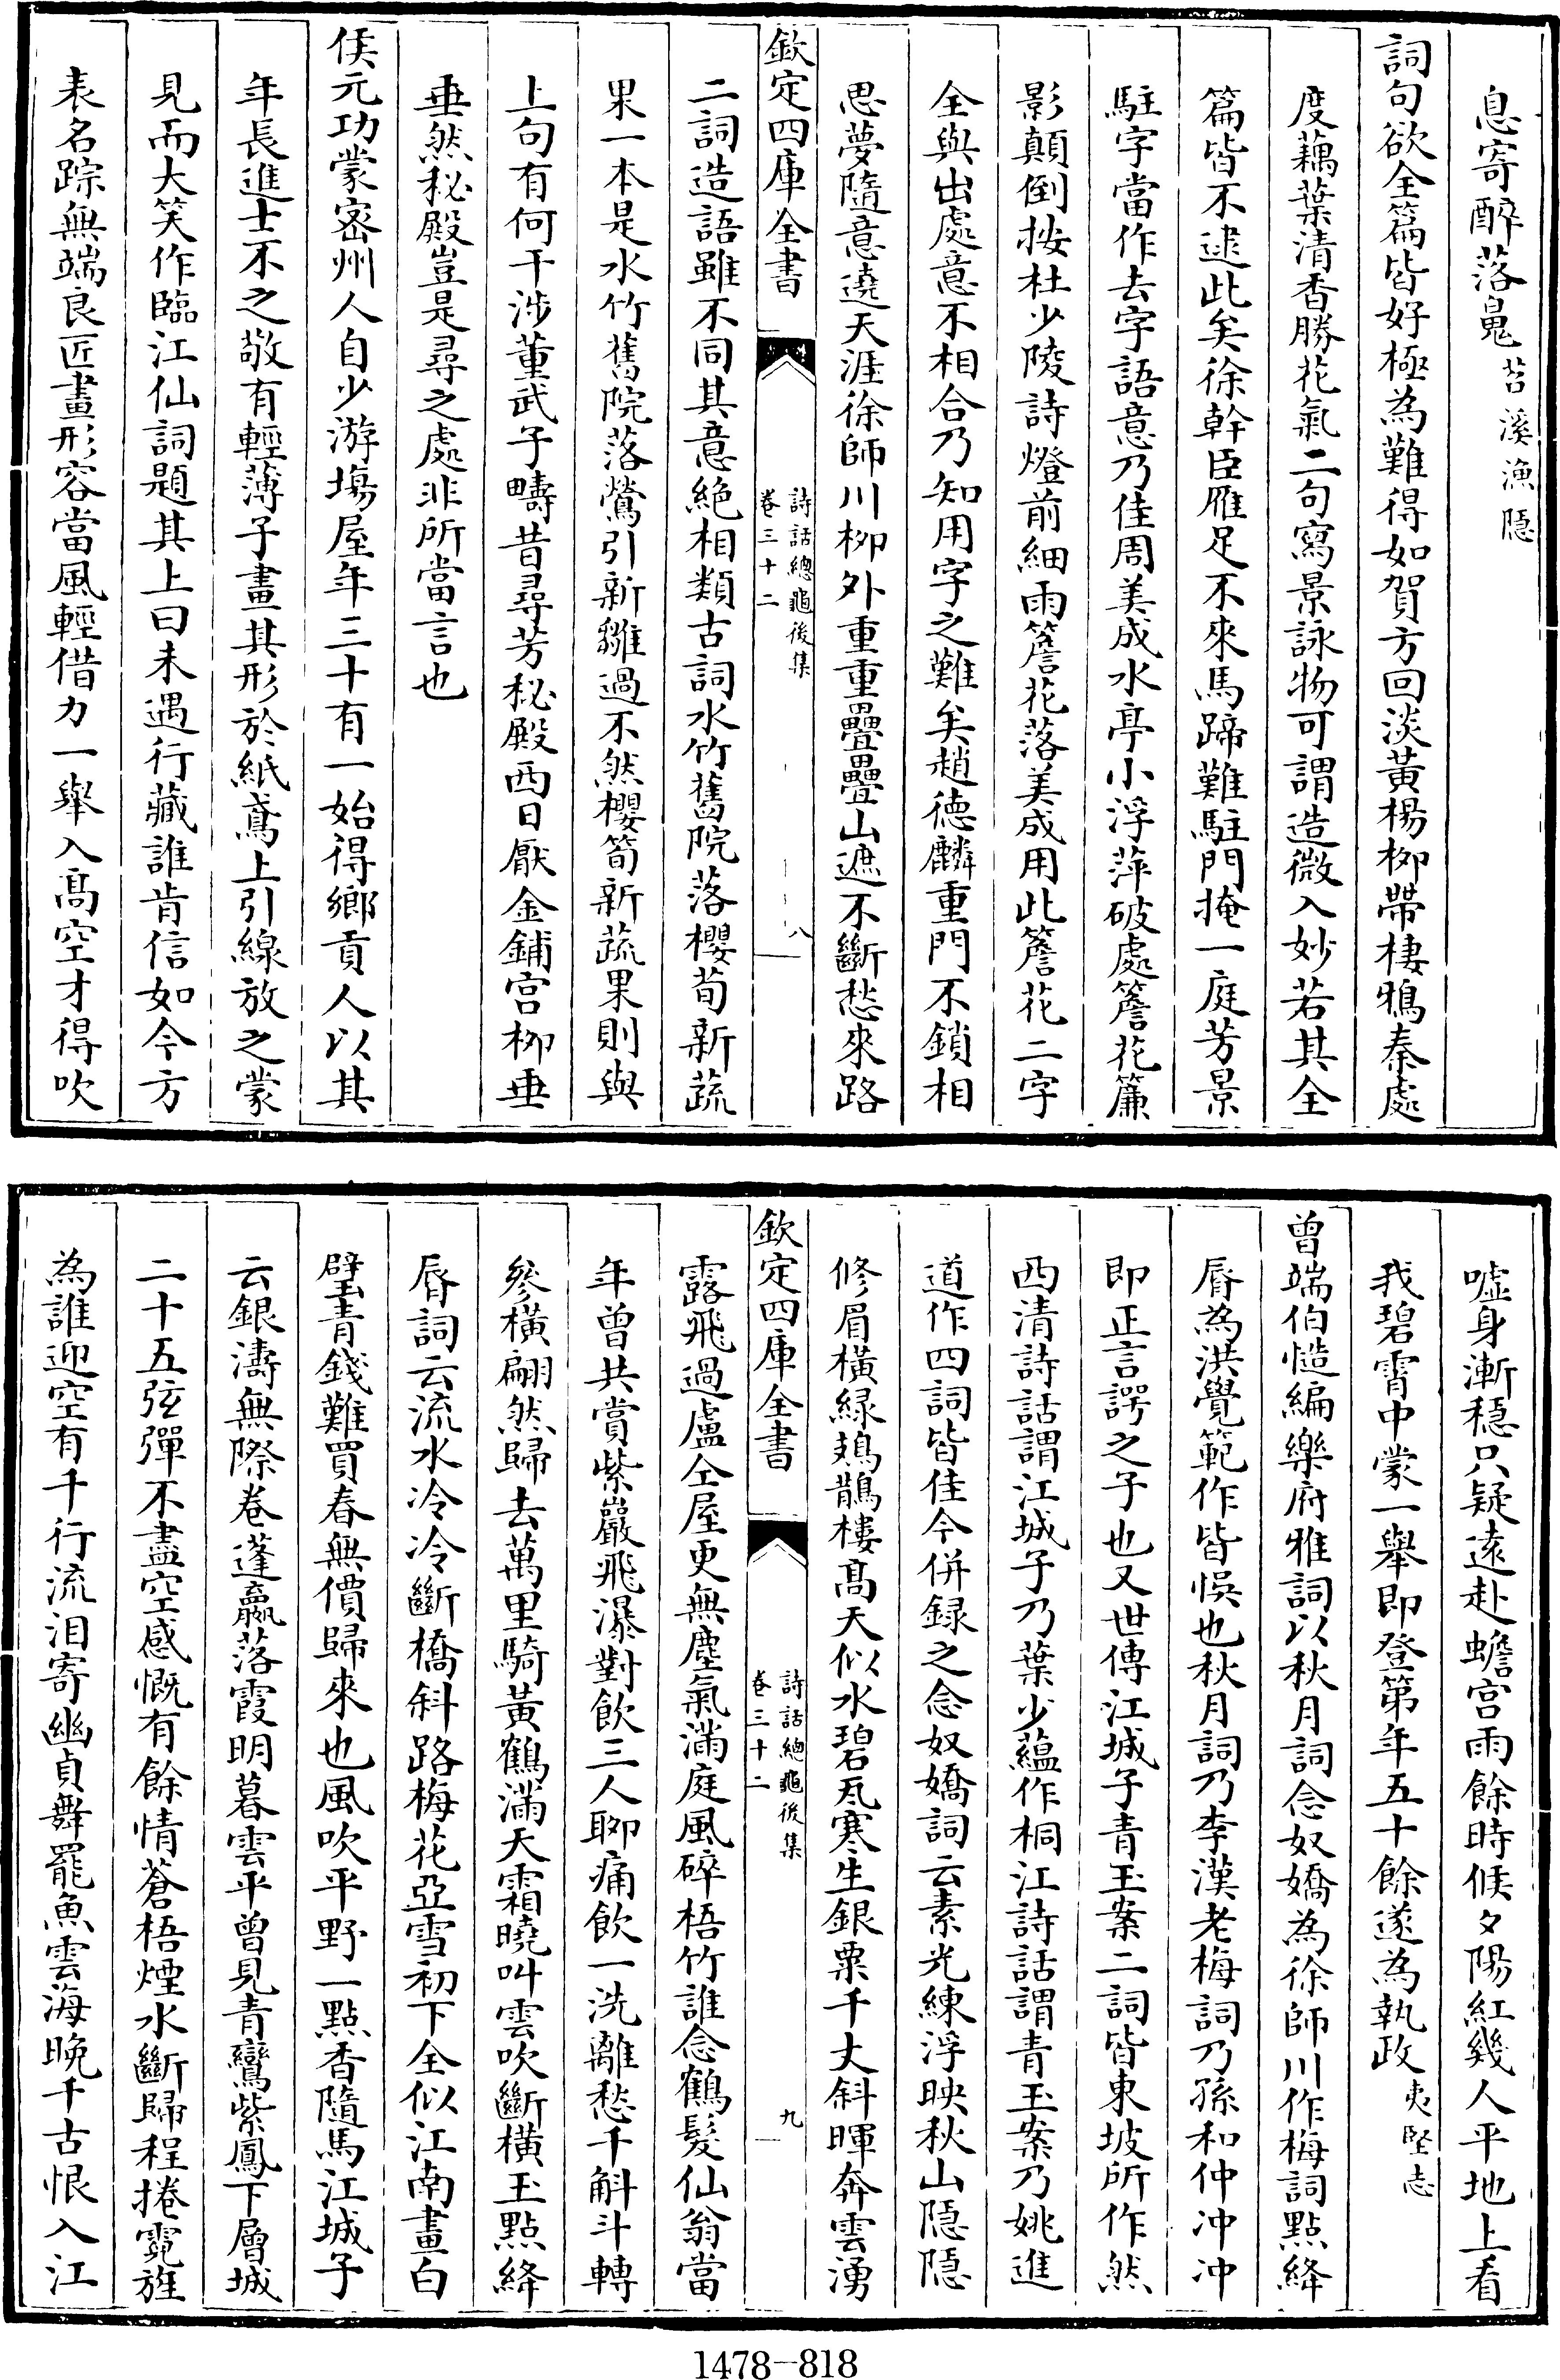 息寄醉落鬼苕溪漁隠
詞句欲全篇皆好極為難得如賀方回淡黃楊栁帶棲鴉秦處
度藕葉清香勝花氣二句寫景詠物可謂造微入妙若其全
篇皆不逮此矣徐幹臣雁足不來馬蹄難駐門掩一庭芳景
駐字當作去字語意乃佳周美成水亭小浮萍破處簷花簾
影顛倒按杜少陵詩燈前細雨簷花落美成用此簷花二字
全與出處意不相合乃知用字之難矣趙德麟重門不鎖相
思夢隨意遶天涯徐師川栁外重重疊疊山遮不斷愁來路
欽定四庫全書
詩話總龜後集
卷三十二
八
二詞造語雖不同其意絶相類古詞水竹舊院落櫻荀新蔬
果一本是水竹舊院落鶯引新雛過不然櫻筍新蔬果則與
上句有何干涉董武子疇昔尋芳秘殿西日厭金鋪宫栁垂
垂然秘殿豈是尋之處非所當言也
侯元功蒙密州人自少游塲屋年三十有一始得鄉貢人以其
年長進士不之敬有輕薄子畫其形於紙鳶上引線放之蒙
見而大笑作臨江仙詞題其上曰未遇行藏誰肯信如今方
表名踪無端良匠畫形容當風輕借力一舉入髙空才得吹
噓身漸穏只疑遠赴蟾宫雨餘時候夕陽紅幾人平地上看
我碧霄中蒙一舉即登第年五十餘遂為執政夷堅志
曾端伯慥編樂府雅詞以秋月詞念奴嬌為徐師川作梅詞點絳
脣為洪覺範作皆悞也秋月詞乃李漢老梅詞乃孫和仲冲冲
即正言諤之子也又世傳江城子青玉案二詞皆東坡所作然
西清詩話謂江城子乃葉少藴作桐江詩話謂青玉案乃姚進
道作四詞皆佳今併録之念奴嬌詞云素光練浮映秋山隠隠
修眉橫緑鳷鵲樓髙天似水碧瓦寒生銀粟千丈斜暉奔雲湧
欽定四庫全書
詩話總龜後集
卷三十二
九
露飛過盧仝屋更無塵氣滿庭風碎梧竹誰念鶴髮仙翁當
年曾共賞紫巖飛瀑對飲三人聊痛飲一洗離愁千斛斗轉
參橫翩然歸去萬里騎黃鶴滿天霜曉叫雲吹斷橫玉點絳
脣詞云流水冷冷斷橋斜路梅花亞雪初下全似江南畫白
璧青錢難買春無價歸來也風吹平野一點香隨馬江城子
云銀濤無際卷蓬瀛落霞明暮雲平曾見青鸞紫鳳下層城
二十五弦彈不盡空感慨有餘情蒼梧煙水斷歸程捲霓旌
為誰迎空有千行流泪寄幽貞舞罷魚雲海晚千古恨入江
1478—818